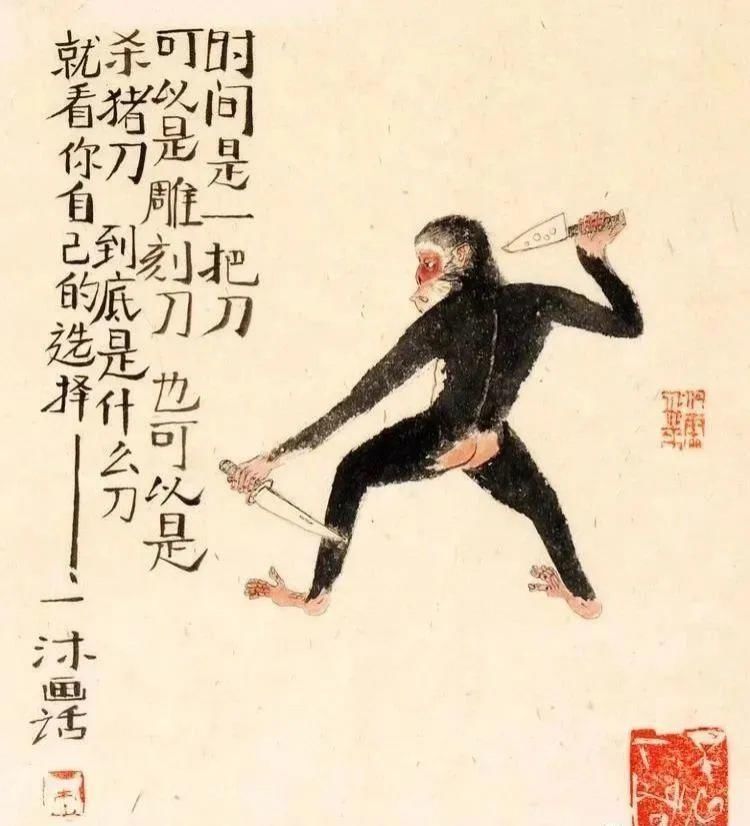 时间是一把刀
可以是雕刻刀 也可以是
杀猪刀 到底是什么刀
就看你自己的选择——
一沐画话